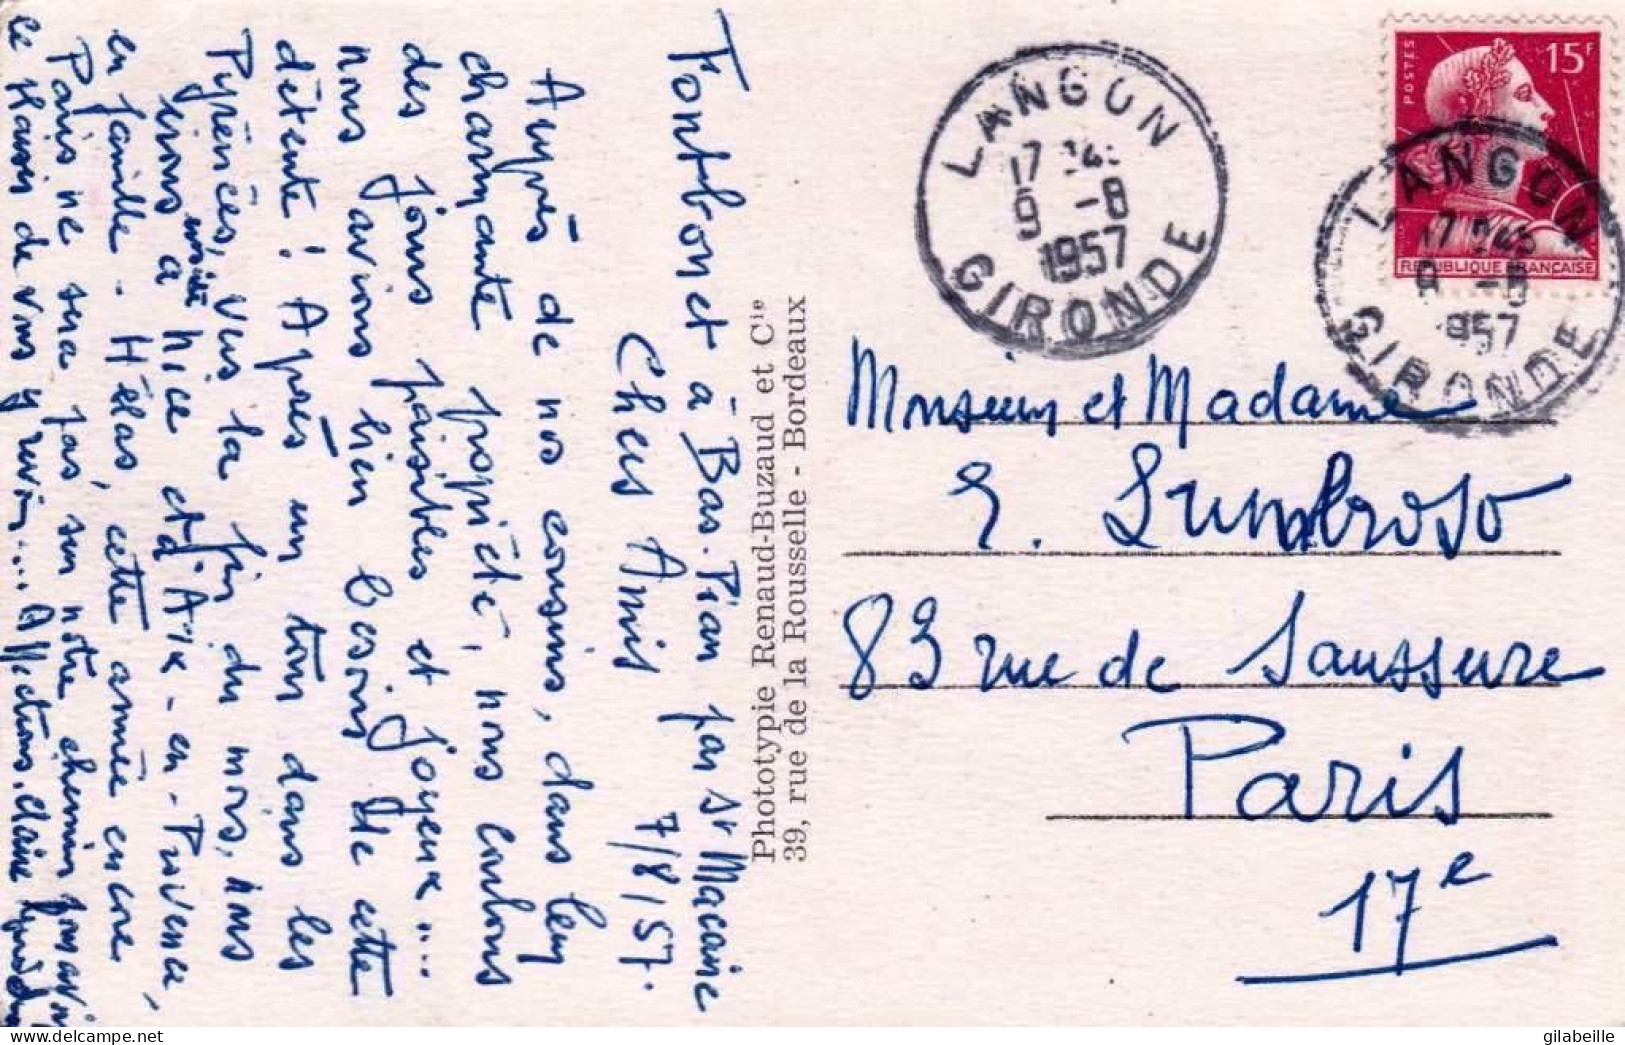 Fontbonet à Bas. Pian par St Macaire
7/8/57.
Chers Amis
Auprès de nos cousins, dans leur
charmante propriété, nous coulons
des jours paisibles et joyeux....
nous avions bien besoin de cette
détente ! Après un tour dans les
Pyrénées, vers la fin du mois, nous
irons ensuite à Nice et à Aix-en-Provence,
en famille - Hélas, cette année encore
Paris ne sera pas sur notre chemin pour avoir
le plaisir de vous y revoir.... Affections. Claire
Phototypie Renaud-Buzaud et Cie
39, rue de la Rousselle - Bordeaux
LANGON
17 H45
9 -8
1957
GIRONDE
POSTES
15F
REPUBLIQUE FRANCAISE
LANGON
17 H45
9 -8
1957
GIRONDE
Monsieur et Madame
E. Lumbroso
83 rue de Saussure
Paris
17e
gilabeille